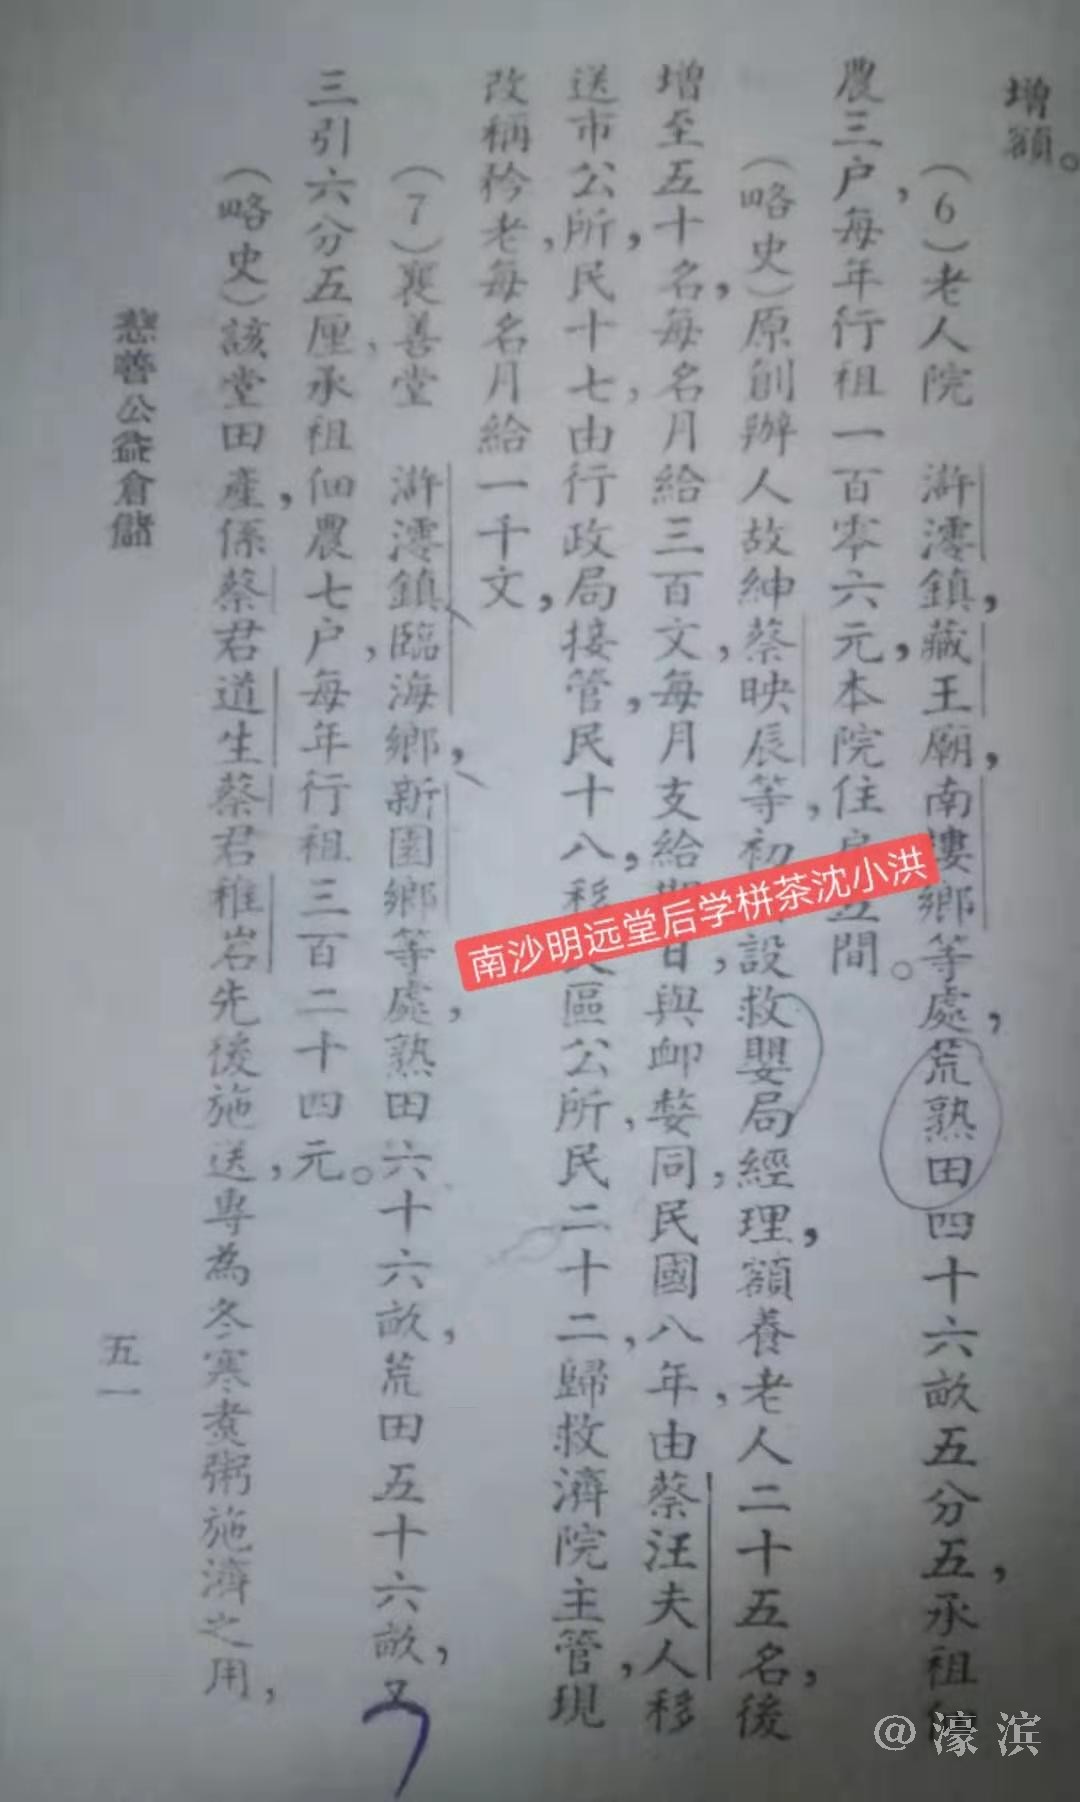 增額。
(6)老人院　滸澪鎮，藏王廟，南摟鄉等處，荒熟田四十六畝五分五，承祖佃
農三户，每年行祖一百零六元，本院住五間。
(略史)原創辦人故紳蔡映辰等，初設救嬰局經理，額養老人二十五名，後
增至五十名，每名月給三百文，每月支給日，與卹嫠同，民國八年，由蔡汪夫人移
送市公所，民十七，由行政局接管，民十八，移區公所，民二十二，歸救濟院主管，現
改稱矜老，每名月給一千文，
(7)襄善堂　滸澪鎮、臨海鄉，、新園鄉等處，熟田六十六畝，荒田五十六畝，又
三引六分五厘，承祖佃農七户，每年行祖三百二十四元。
(略史)該堂田產，係蔡君道生蔡君稚岩先後施送，專為冬寒煮粥施濟之用，
慈善公益倉儲
五一
南沙明远堂后学栟茶沈小洪
@濠滨